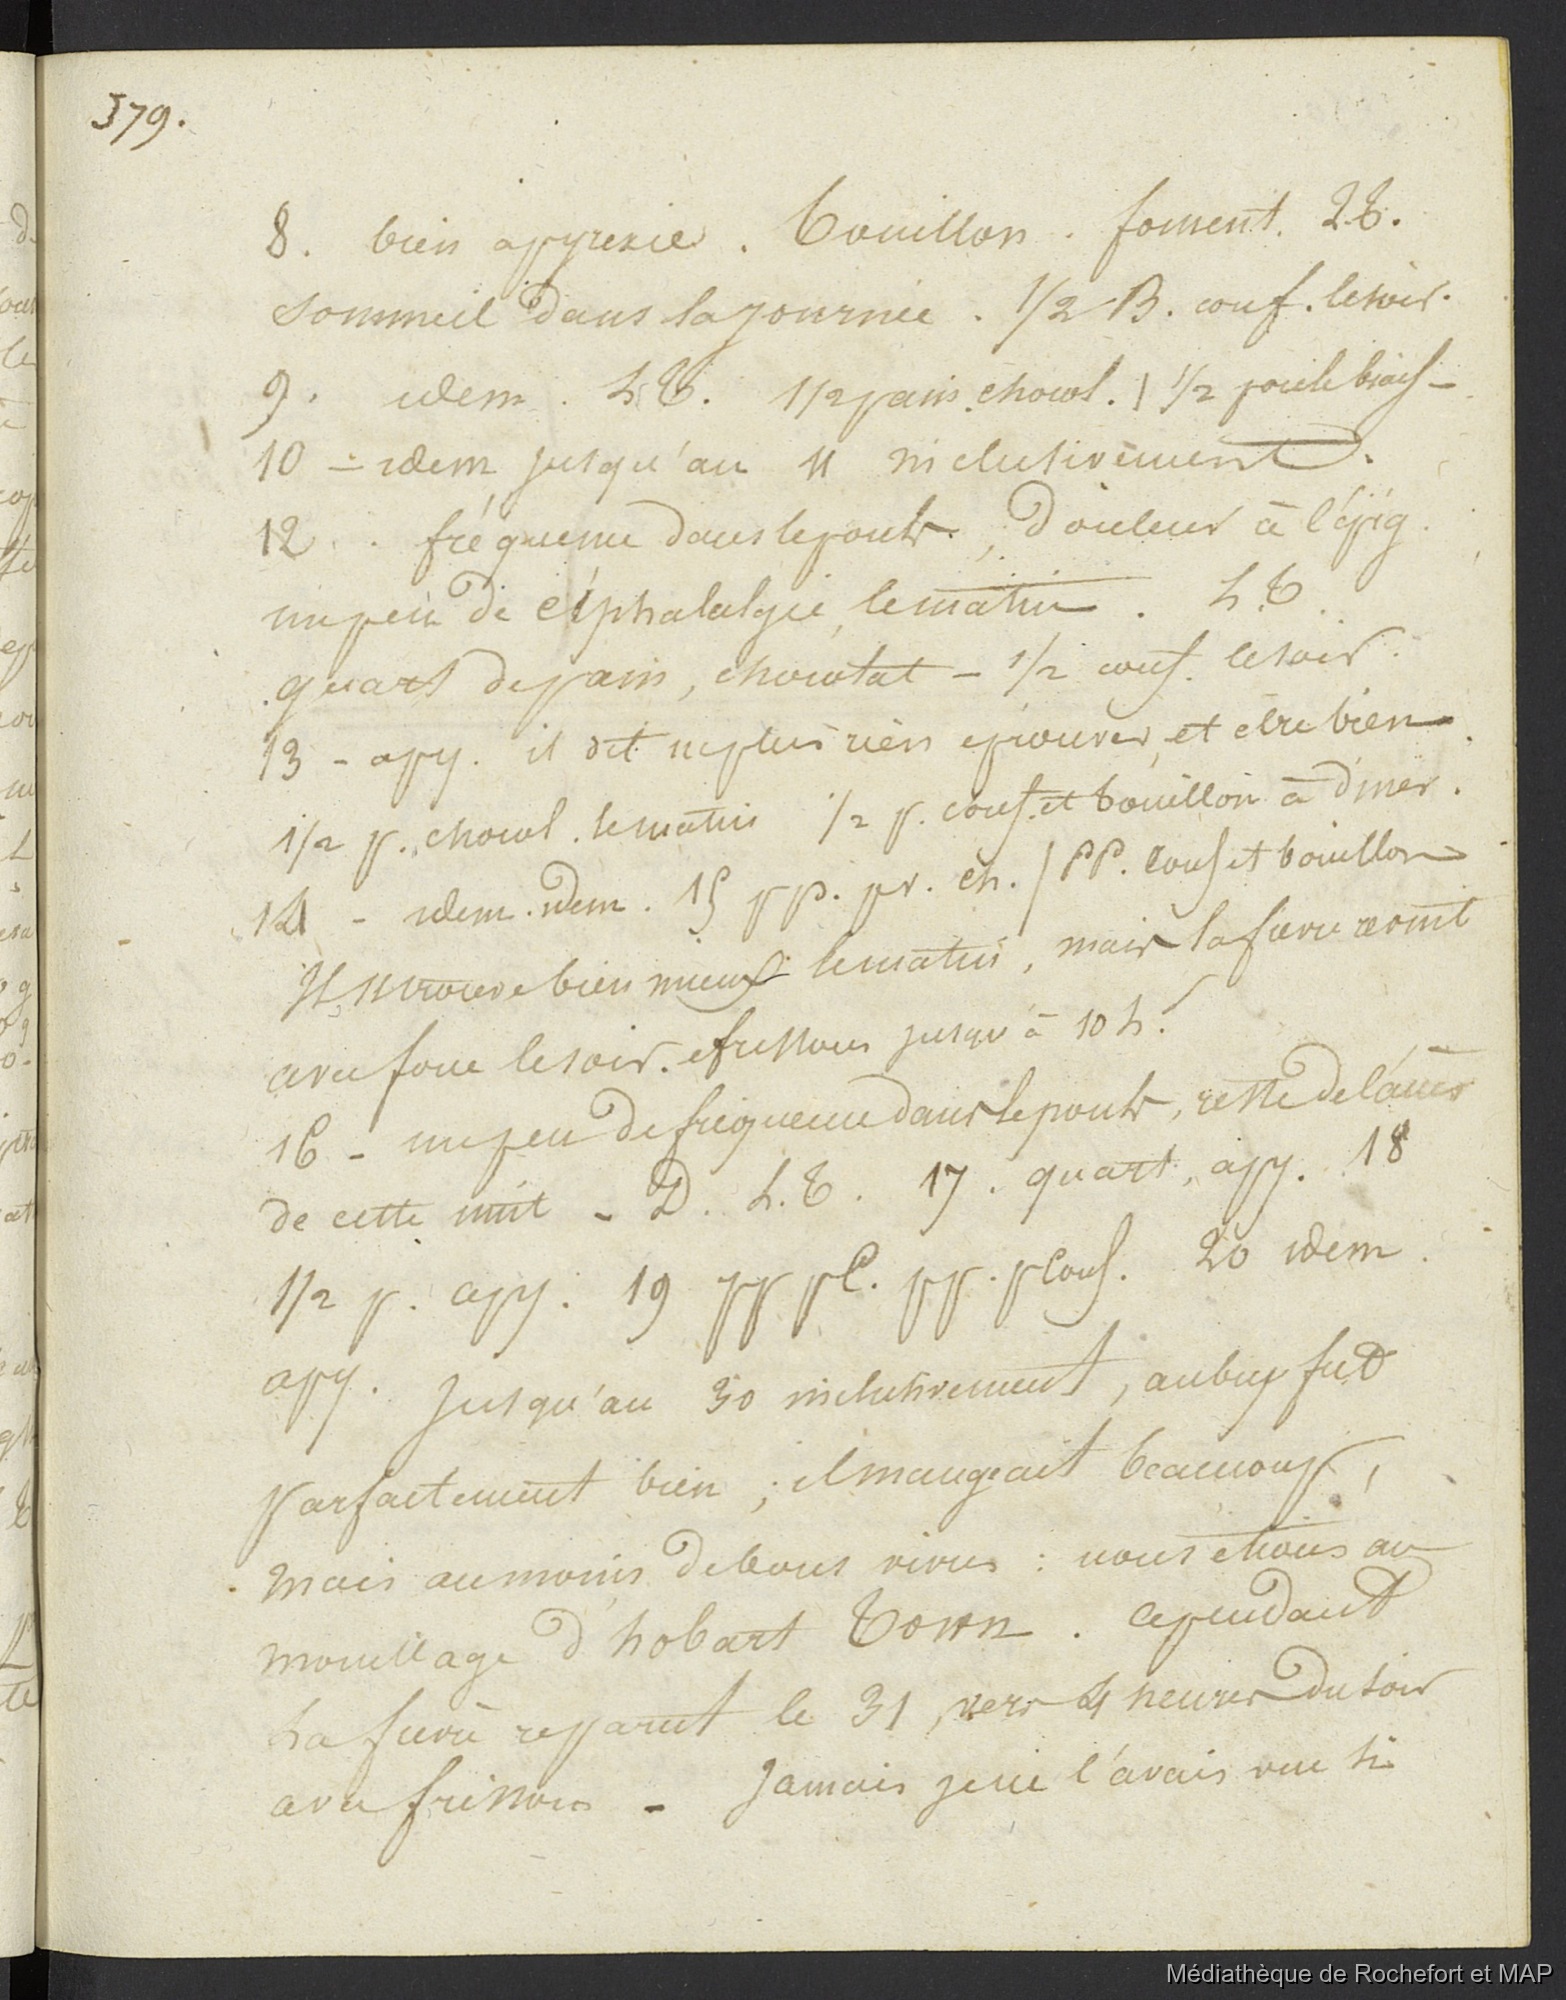 379.
8. bien apyrexie. bouillon. foment. 2 T.
sommeil dans la journée. 1/2 B. conf. le soir.
9. idem. L T. 1/2 pain. chocol. | 1/2
10 - idem jusqu'au 11 inclusivement.
12. fréquence dans le pouls, Douleur à l'épig.
un peu de céphalalgie, le matin. L. T.
quart de pain, chocolat - 1/2 conf. le soir.
13 - apy. il dit ne plus rien eprouver, et etre bien.
1/2 p. chocol. le matin 1/2 p. conf. et bouillon à diner.
14 - idem. idem. 15 pp. pr. ch. / PP. conf et bouillon
Il se trouve bien mieux le matin, mais la fievre revint
avec force le soir. et frissons jusqu'à 10 h.
16 - un peu de frequence dans le pouls, reste de l'accès
de cette nuit - D. L. T. 17. quart, apy. 18
1/2 p. apy. 19 pp pC. pp. pConf. 20 idem.
apy. Jusqu'au 30 inclusivement, aubry fut
parfaitement bien; il mangeait beaucoup,
mais au moins de bons vivres: nous etions au
mouillage d'hobart Town. Cependant
La fievre reparut le 31, vers 4 heures du soir
avec frissons - Jamais je ne l'avais vue si
Médiathèque de Rochefort et MAP